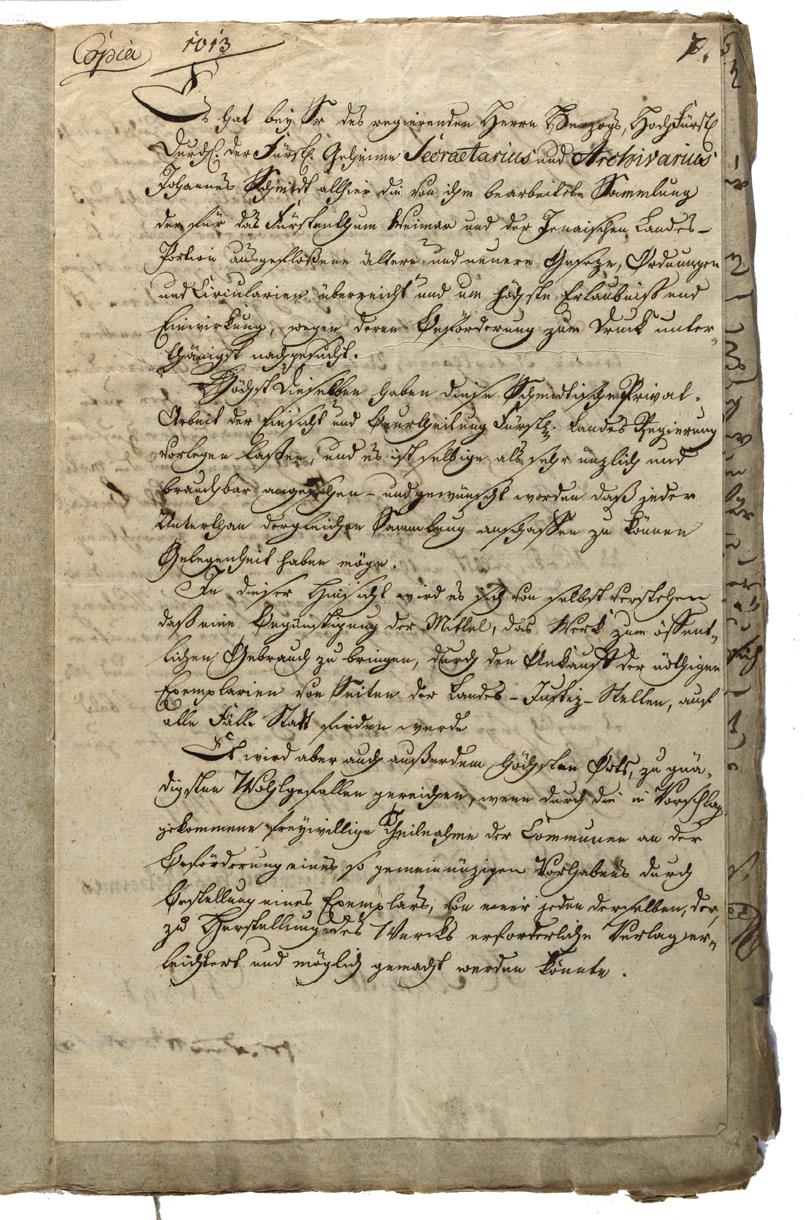 Copia 1013 7.
Es hat bey Sr des regierenden Herrn Herzogs, HochFürstl
Durchl: der Fürstl: Geheime Secraetarius und Archivarius
Johannes Schmidt allhier die von ihm bearbeitete Sammlung
der für das Fürstenthum Weimar und der Jenaischen Landes-
Portion ausgefloßene ältere und neuere Geseze, Ordnungen
und Circularien überreicht und um höchste Erlaubniß und
Einwirkung, wegen deren Beförderung zum Druck unter-
thänigst nachgesucht.
Höchst Dieselben haben diese Schmidtische Privat-
Arbeit der Einsicht und Beurtheilung Fürstl: Landes Regierung
vorlegen laßen, und es ist selbige als sehr nüzlich und
brauchbar angesehen - und gewünscht worden daß jeder
Unterthan dergleichen Sammlung anschaffen zu können
Gelegenheit haben möge.
In dieser Hinsicht wird es sich von selbst verstehen
daß eine Begünstigung der Mittel, das Werk zum öffent-
lichen Gebrauch zu bringen, durch den Ankauf der nöthigen
Exemplarien von Seiten der Landes-Justiz-Stellen, auf
alle Fälle Statt finden werde
Es wird aber auch außerdem höchsten Orts, zu gnä-
digsten Wohlgefallen gereichen, wenn durch die in Vorschlag
gekommene freywillige Theilnahme der Communen an der
Beförderung eines so gemeinnüzigen Vorhabens durch
Bestellung eines Exemplars, von einer jeden derselben, der,
zu Herstellung des Wercks erforderliche Verlag er-
leichtert und möglich gemacht werden könnte.